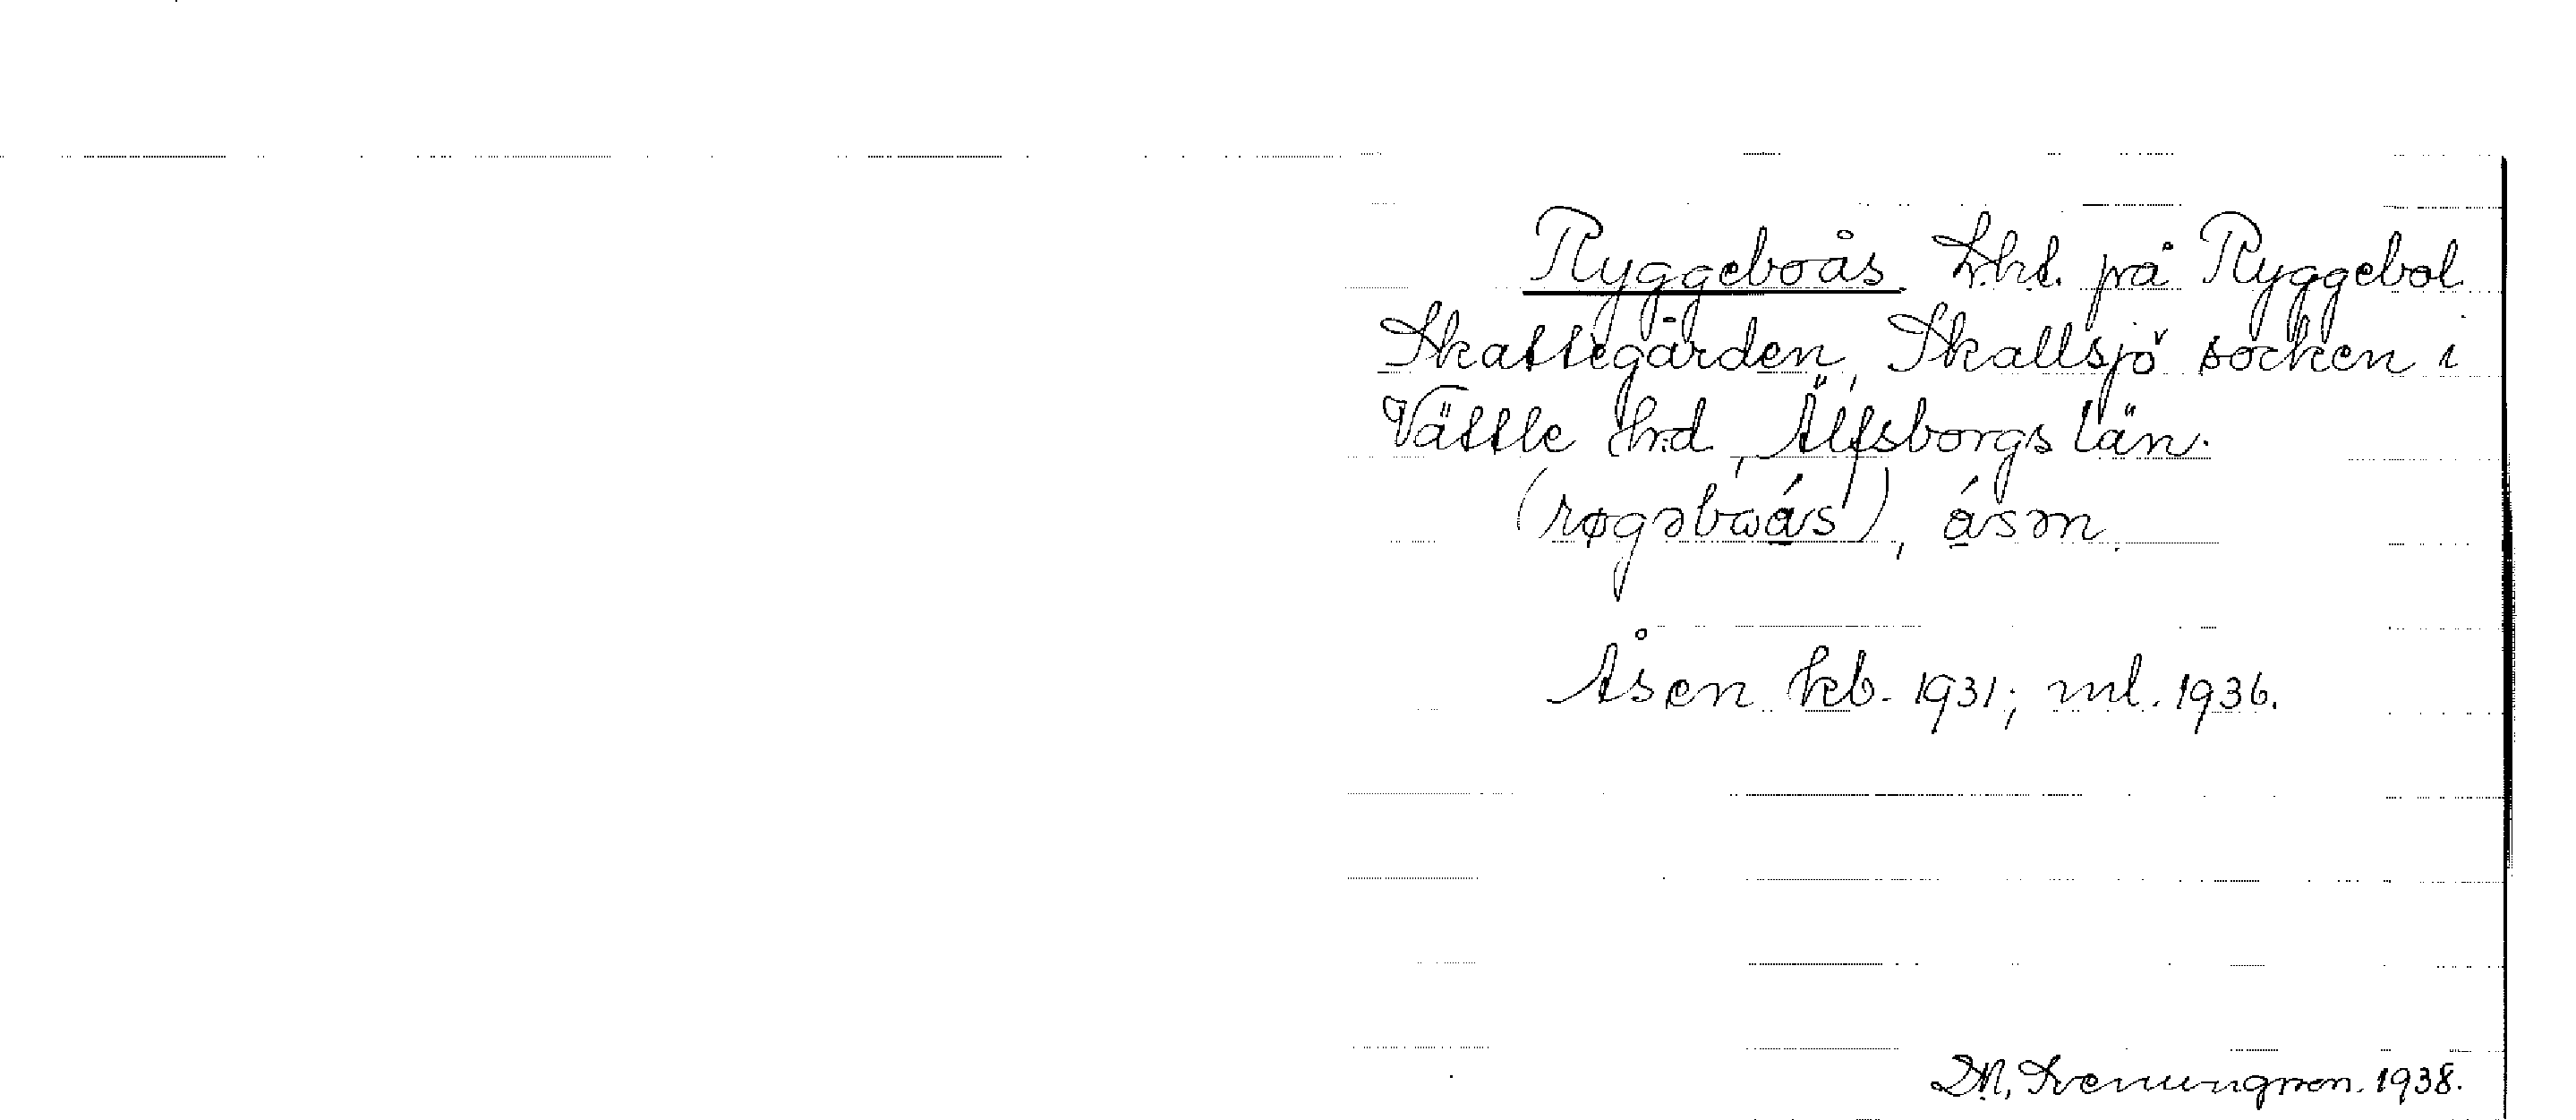 Ryggeboås. Lht. på Ryggebol
Skattegården, Skallsjö socken i
Vättle hd, Älfsborgs län.
(røgəbωás), ásən.
Åsen kb. 1931; ml. 1936.
D.N. Svenungsson. 1938.